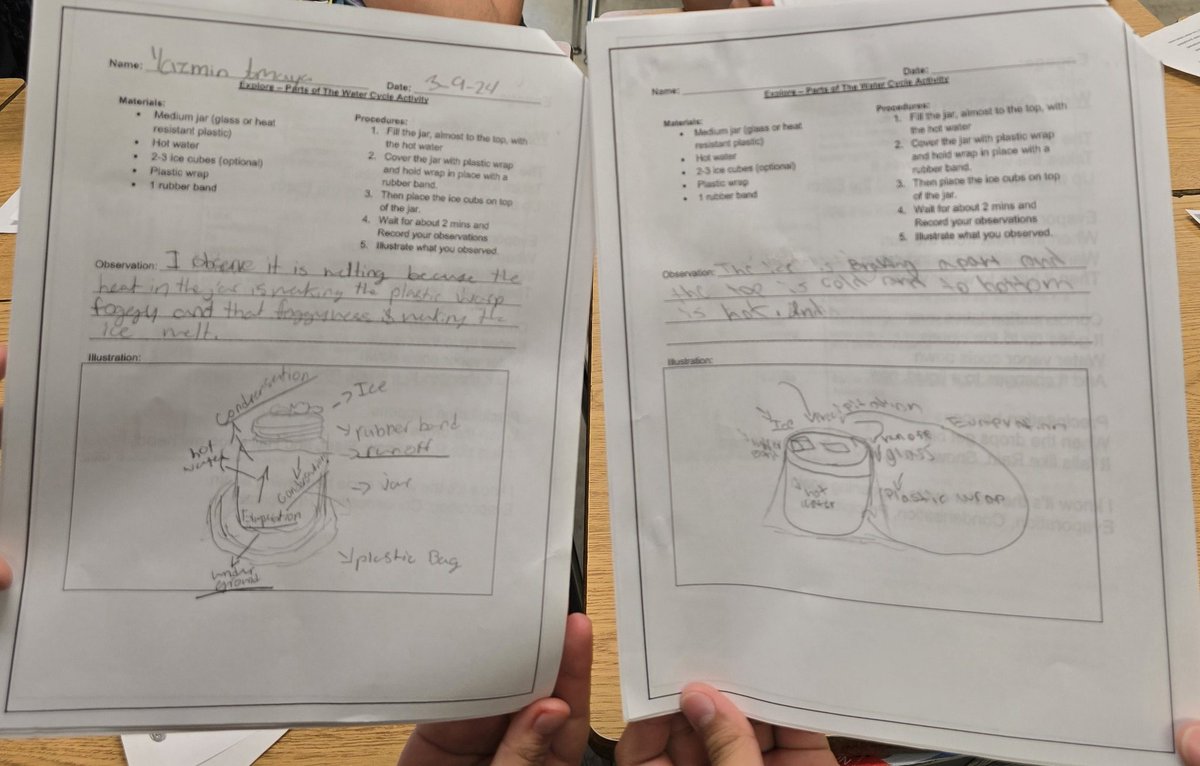 Name: Yazmin
Date: 3-9-24
Explore – Parts of The Water Cycle Activity
Materials:
• Medium jar (glass or heat
resistant plastic)
• Hot water
• 2-3 ice cubes (optional)
• Plastic wrap
• 1 rubber band
Procedures:
1. Fill the jar, almost to the top, with
the hot water
2. Cover the jar with plastic wrap
and hold wrap in place with a
rubber band.
3. Then place the ice cubs on top
of the jar.
4. Wait for about 2 mins and
Record your observations
5. Illustrate what you observed.
Observation: I observe it is melting because the
heat in the jar is making the plastic warp
foggy and that foggyness is making the
ice melt.
Illustration:
Condensation
Ice
rubber band
runoff
hot
water
Jar
plastic Bag
under
ground
Name:
Date:
Explore – Parts of The Water Cycle Activity
Materials:
• Medium jar (glass or heat
resistant plastic)
• Hot water
• 2-3 ice cubes (optional)
• Plastic wrap
• 1 rubber band
Procedures:
1. Fill the jar, almost to the top, with
the hot water
2. Cover the jar with plastic wrap
and hold wrap in place with a
rubber band.
3. Then place the ice cubs on top
of the jar.
4. Wait for about 2 mins and
Record your observations
5. Illustrate what you observed.
Observation: The ice is apart and
the top is cold and to bottom
is hot. And
Illustration:
Ice
runoff
glass
plastic wrap
hot
water